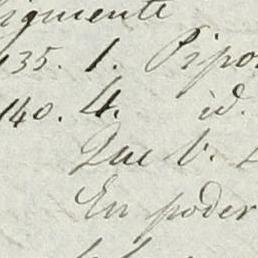 siguiente
135. 1. Pipo
140. 4. id.
Que b.
En poder